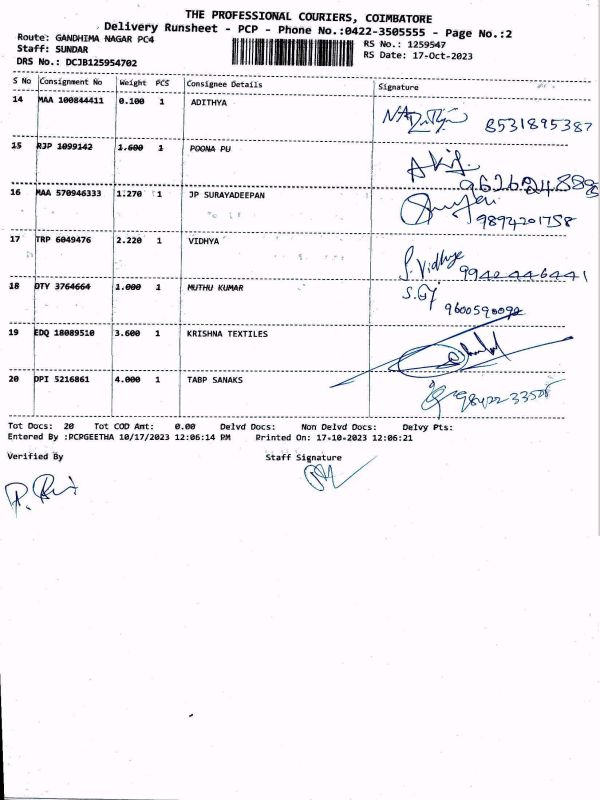 THE PROFESSIONAL COURIERS, COIMBATORE
Delivery Runsheet - PCP - Phone No.:0422-3505555 - Page No.:2
Route: GANDHIMA NAGAR PC4
RS No.: 1259547
Staff: SUNDAR
RS Date: 17-Oct-2023
DRS No.: DCJB125954702
S No Consignment No Weight PCS Consignee Details Signature
14 MAA 100844411 0.100 1 ADITHYA
8531895387
15 RJP 1099142 1.600 1 POONA PU
16 MAA 570946333 1.270 1 JP SURAYADEEPAN
9894201758
17 TRP 6049476 2.220 1 VIDHYA
S. Vidhya 9942446441
18 DTY 3764664 1.000 1 MUTHU KUMAR
9600590092
19 EDQ 18089510 3.600 1 KRISHNA TEXTILES
20 DPI 5216861 4.000 1 TABP SANAKS
Tot Docs: 20 Tot COD Amt: 0.00 Delvd Docs: Non Delvd Docs: Delvy Pts:
Entered By :PCPGEETHA 10/17/2023 12:06:14 PM Printed On: 17-10-2023 12:06:21
Verified By Staff Signature